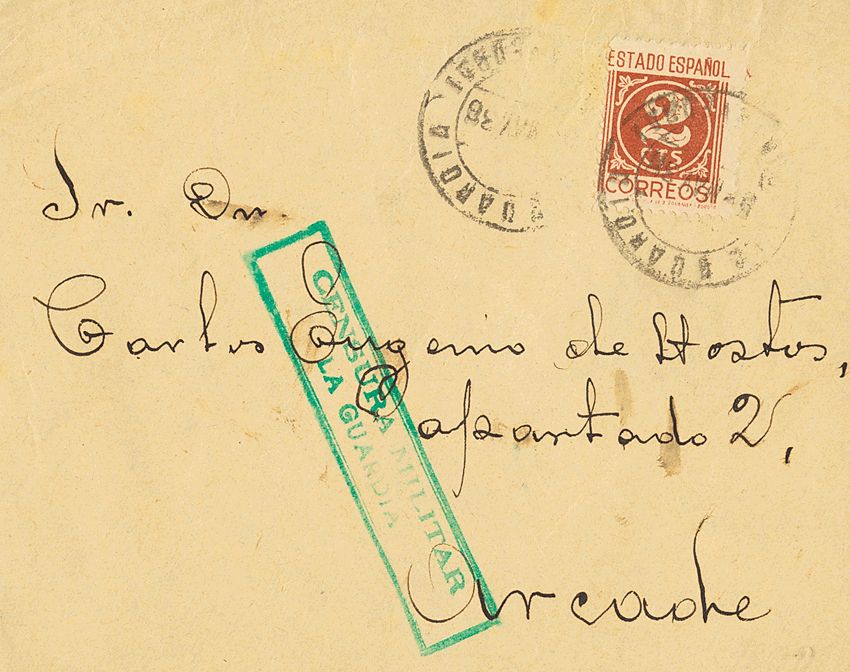 ESTADO ESPAÑOL
2
CTS
CORREOS
GUARDIA
38
GUARDIA
Sr. Dn
Carlos Eugenio de Hostos,
apartado 2,
Arcade
CENSURA MILITAR
LA GUARDIA